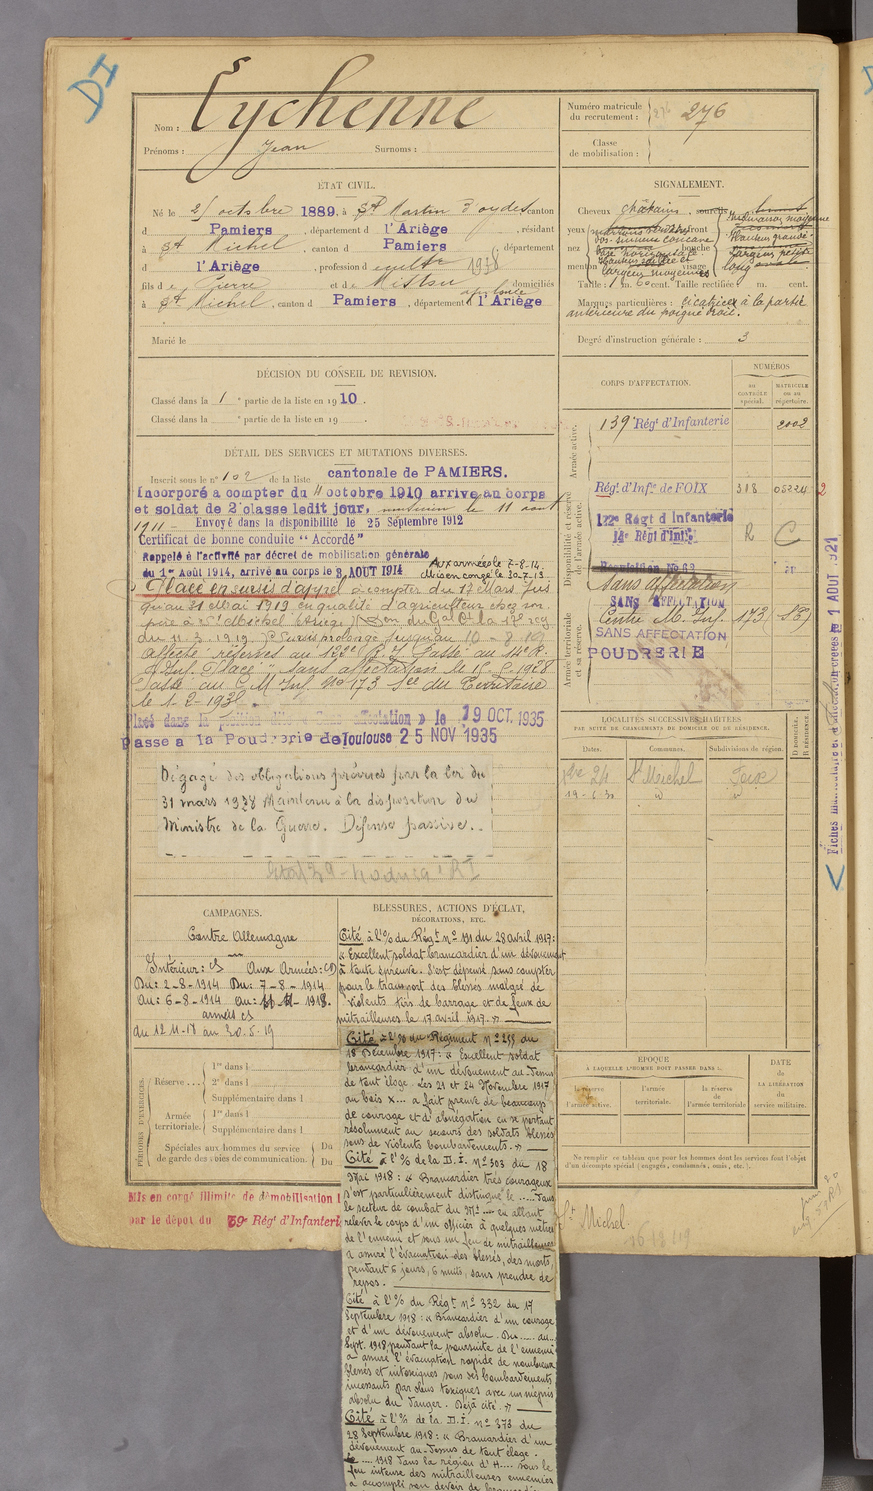 DI
Nom : Eychenne
Prénoms : Jean Surnoms :
ÉTAT CIVIL.
Né le 21 octobre 1889, à St Martin d'oydes canton
d Pamiers, département d l'Ariège, résidant
à St Michel, canton d Pamiers département
d l'Ariège, profession d cultr 1938
fils d e Pierre et d e domiciliés
à St Michel, canton d Pamiers, département d l'Ariège
Marié le
DÉCISION DU CONSEIL DE REVISION.
Classé dans la 1e partie de la liste en 1910.
Classé dans la e partie de la liste en 19
DÉTAIL DES SERVICES ET MUTATIONS DIVERSES.
Inscrit sous le n° 102 de la liste cantonale de PAMIERS.
Incorporé a compter du 11 octobre 1910 arrivé au corps
et soldat de 2e classe ledit jour, musicien le 11 aout
1911 - Envoyé dans la disponibilité le 25 Septembre 1912
Certificat de bonne conduite "Accordé"
Rappelé à l'activité par décret de mobilisation générale
du 1er Août 1914, arrivé au corps le 3 AOUT 1914
Aux armées le 7-8-14.
Mis en congé le 30-7-19.
Placé en sursis d'appel à compter du 17 Mars jus
qu'au 31 Mai 1919 en qualité d'agriculteur chez son
père à St Michel (Ariège) Don du Gal Ct la 17e reg
du 11-3-1919. Sursis prolongé jusqu'au 10-8-19
Affecté réserves au 122e R.I. Passé au 14e R.
d'Inf. Placé "sans affectation" le 15-5-1928
Passé au C.M Inf. No 173 Sce du Territoire
le 1-2-193
Placé dans la position dite « Sans affectation » le 19 OCT. 1935
Passé a la Poudrerie de Toulouse 25 NOV 1935
Dégagé des obligations prévues par la loi du
31 mars 1928 Maintenu à la disposition du
Ministre de la Guerre. Défense passive.
CAMPAGNES.
Contre Allemagne
Intérieur : CS Aux Armées : CD
Du : 2-8-1914 Du : 7-8-1914
Au : 6-8-1914 au : 11-11-1918.
armées CS
du 12 11-18 au 30-5-19
PÉRIODES D'EXERCICES.
Réserve... 1re dans l
2e dans l
Supplémentaire dans l
Armée territoriale. 1re dans l
Supplémentaire dans l
Spéciales aux hommes du service
de garde des voies de communication.
Du
Du
Mis en congé illimité de démobilisation l
par le dépot du 59e Rég' d'Infanterie
BLESSURES, ACTIONS D'ÉCLAT,
DÉCORATIONS, ETC.
Cité à l'O/ du Régt n° 191 du 28 avril 1917 :
« Excellent soldat brancardier d'un dévouement
à toute épreuve. S'est dépensé sans compter
pour le transport des blessés malgré de
violents tirs de barrage et de feux de
mitrailleuses le 17 avril 1917. »
Cité à l'O/ du Régiment n° 255 du
18 Décembre 1917 : « Excellent soldat
brancardier d'un dévouement au-dessus
de tout éloge. Les 21 et 24 Novembre 1917
au bois X... a fait preuve de beaucoup
de courage et d'abnégation en se portant
résolument au secours des soldats blessés
sous de violents bombardements. »
Cité à l'O/ de la D.I. n° 303 du 18
Mai 1918 : « Brancardier très courageux
s'est particulièrement distingué le ..... dans
le secteur de combat du Mt .... en allant
relever le corps d'un officier à quelques mètres
de l'ennemi et sous un feu de mitrailleuses
a assuré l'évacuation des blessés, des morts,
pendant 6 jours, 6 nuits, sans prendre de
repos.
Cité à l'O/ du Régt n° 332 du 17
Septembre 1918 : « Brancardier d'un courage
et d'un dévouement absolu. Du ..... au..
Sept. 1918 pendant la poursuite de l'ennemi
a assuré l'évacuation rapide de nombreux
blessés et intoxiqués sous des bombardements
incessants par obus toxiques avec un mépris
absolu du danger. Déjà cité. »
Cité à l'O/ de la D.I. n° 373 du
28 Septembre 1918 : « Brancardier d'un
dévouement au-dessus de tout éloge.
le .... 1918 dans la région d'H.... sous le
feu intense des mitrailleuses ennemies
a accompli son devoir de brancardier
Numéro matricule
du recrutement : 276
Classe
de mobilisation :
SIGNALEMENT.
Cheveux châtains, sourcils
yeux front
nez bouche
menton visage
dos-sinueux concave
base horizontale
largeur moyennes
Hauteur grande
largeur petite
long
Taille : 1 m. 60 cent. Taille rectifiée m. cent.
Marques particulières : cicatrices à la partie
antérieure du poignet droit.
Degré d'instruction générale : 3
CORPS D'AFFECTATION.
NUMÉROS
AU CONTRÔLE spécial.
MATRICULE ou au répertoire.
Armée active.
139e Rég' d'Infanterie 2002
Disponibilité et réserve de l'armée active.
Rég' d'Infie de FOIX 318 05224 2
122e Régt d Infanterie R C
14e Régt d'Infie
Requisition No 63
Sans affectation
SANS AFFECTATION
Armée territoriale et sa réserve.
Centre M. Inf. 173
SANS AFFECTATION
POUDRERIE
LOCALITÉS SUCCESSIVES HABITÉES
PAR SUITE DE CHANGEMENTS DE DOMICILE OU DE RÉSIDENCE.
Dates. Communes. Subdivisions de région. D DOMICILE. R RÉSIDENCE.
St Michel Foix
EPOQUE
À LAQUELLE L'HOMME DOIT PASSER DANS :
la réserve de l'armée active.
l'armée territoriale.
la réserve de l'armée territoriale
DATE
de
LA LIBÉRATION
du
service militaire.
Ne remplir ce tableau que pour les hommes dont les services font l'objet
d'un décompte spécial (engagés, condamnés, omis, etc.).
St Michel
1 AOUT 1921